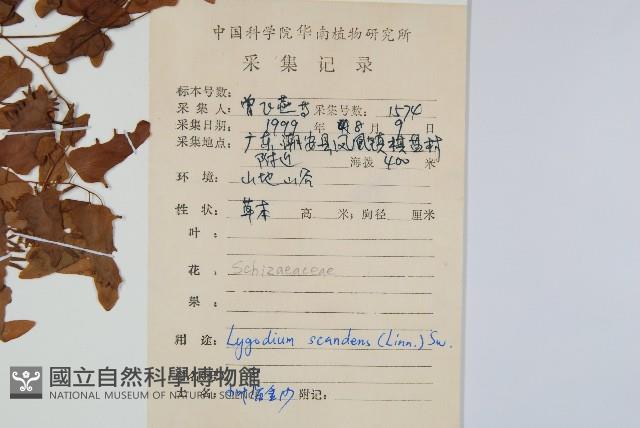 中国科学院华南植物研究所
采集记录
标本号数:
采集人: 曾飞燕等 采集号数: 1574
采集日期: 1999 年 8 月 9 日
采集地点: 广东潮安县凤凰镇棋盘村
附近 海拨 400 米
环境: 山地山谷
性状: 草本 高 米; 胸径 厘米
叶:
花: Schizaeaceae
果:
用途: Lygodium scandens (Linn.) Sw.
土名: 海金沙 附记:
國立自然科學博物館
NATIONAL MUSEUM OF NATURAL SCIENCE